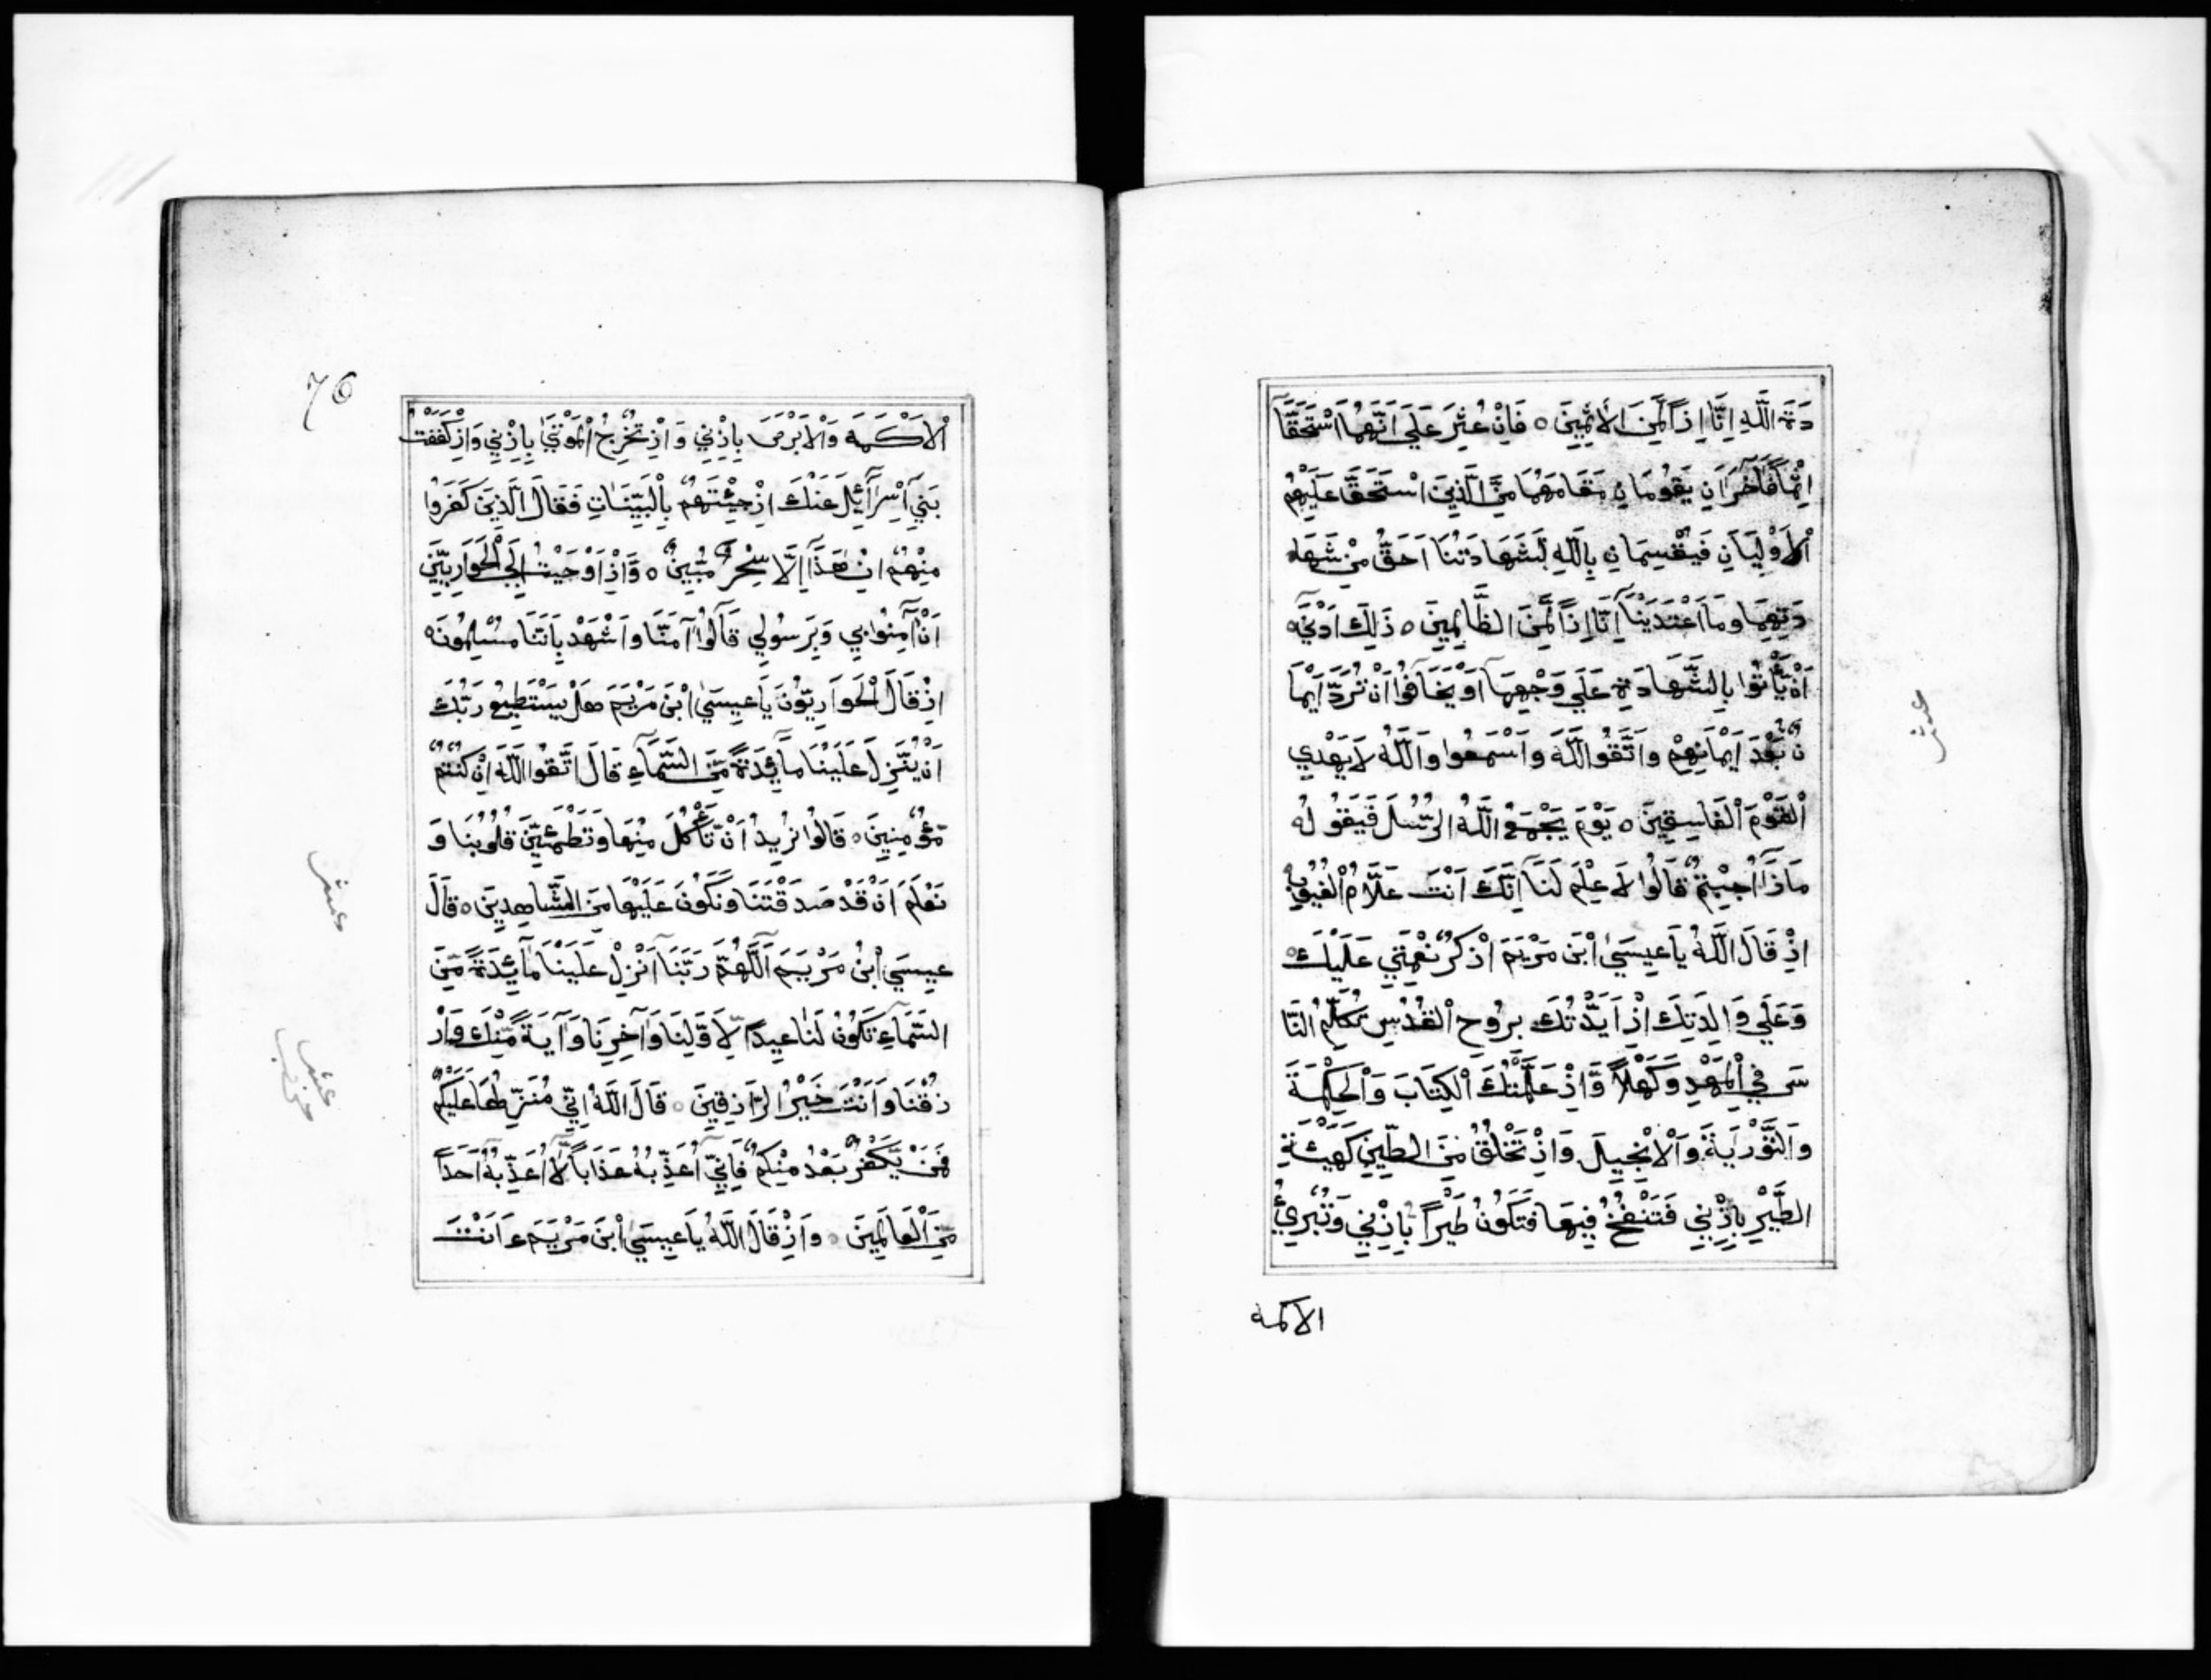 دَةَ اللَّهِ اِنَّا اِذاً لَّمِنَ الْأَثِمِينَ ه فَاِنْ عُثِرَ عَلَى اَنَّهُمَا اسْتَحَقَّآ
اِثْماً فَأَخَرَانِ يَقُومَانِ مَقَامَهُمَا مِنَ الَّذِينَ اسْتَحَقَّ عَلَيْهِمُ
اْلاَوْلَيَانِ فَيُقْسِمَانِ بِاللَّهِ لَشَهَادَتُنَا اَحَقُّ مِنْ شَهَا
دَتِهِمَا وَمَا اعْتَدَيْنَآ اِنَّا اِذاً لَّمِنَ الظَّالِمِينَ ه ذَلِكَ اَدْنَيَ
اَنْ يَّأْتُوا بِالشَّهَادَةِ عَلَي وَجْهِهَآ اَوْ يَخَافُوا اَنْ تُرَدَّ اَيْمَا
نٌ بَعْدَ اَيْمَانِهِمْ وَاتَّقُوا اللَّهَ وَاسْمَعُوا وَاللَّهُ لاَ يَهْدِي
الْقَوْمَ الْفَاسِقِينَ ه يَوْمَ يَجْمَعُ اللَّهُ الرُّسُلَ فَيَقُولُ
مَاذَآ اُجِبْتُمْ قَالُوا لاَ عِلْمَ لَنَآ اِنَّكَ اَنْتَ عَلاَّمُ الْغُيُوبِ
اِذْ قَالَ اللَّهُ يَاعِيسَيٰ ابْنَ مَرْيَمَ اذْكُرْ نِعْمَتِي عَلَيْكَ
وَعَلَي وَالِدَتِكَ اِذْ اَيَّدْتُكَ بِرُوحِ الْقُدُسِ تُكَلِّمُ النَّا
سَ فِي الْمَهْدِ وَكَهْلاً وَّاِذْ عَلَّمْتُكَ الْكِتَابَ وَالْحِكْمَةَ
وَالتَّوْرَيٰةَ وَالْاِنْجِيلَ وَاِذْ تَخْلُقُ مِنَ الطِّينِ كَهَيْئَةِ
الطَّيْرِ بِاِذْنِي فَتَنْفُخُ فِيهَا فَتَكُونُ طَيْراً بِاِذْنِي وَتُبْرِئُ
الاكمه
عشر
76
اْلاَكْمَهَ وَاْلاَبْرَصَ بِاِذْنِي وَاِذْ تُخْرِجُ الْمَوْتَيٰ بِاِذْنِي وَاِذْ كَفَفْتُ
بَنِيٓ اِسْرَآئِيلَ عَنْكَ اِذْ جِئْتَهُمْ بِالْبَيِّنَاتِ فَقَالَ الَّذِينَ كَفَرُوا
مِنْهُمْ اِنْ هَذَآ اِلاَّ سِحْرٌ مُّبِينٌ ه وَاِذْ اَوْحَيْتُ اِلَي الْحَوَارِيِّينَ
اَنْ اٰمِنُوا بِي وَبِرَسُولِي قَالُوآ اٰمَنَّا وَاشْهَدْ بِاَنَّنَا مُسْلِمُونَ ه
اِذْ قَالَ الْحَوَارِيُّونَ يَاعِيسَيٰ ابْنَ مَرْيَمَ هَلْ يَسْتَطِيعُ رَبُّكَ
اَنْ يُّنَزِّلَ عَلَيْنَا مَآئِدَةً مِّنَ السَّمَآءِ قَالَ اتَّقُوا اللَّهَ اِنْ كُنْتُمْ
مُّؤْمِنِينَ ه قَالُوا نُرِيدُ اَنْ نَّأْكُلَ مِنْهَا وَتَطْمَئِنَّ قُلُوبُنَا وَ
نَعْلَمَ اَنْ قَدْ صَدَقْتَنَا وَنَكُونَ عَلَيْهَا مِنَ الشَّاهِدِينَ ه قَالَ
عِيسَي ابْنُ مَرْيَمَ اَللَّهُمَّ رَبَّنَآ اَنْزِلْ عَلَيْنَا مَآئِدَةً مِّنَ
السَّمَآءِ تَكُونُ لَنَا عِيداً لِّاَوَّلِنَا وَاٰخِرِنَا وَاٰيَةً مِّنْكَ وَارْ
زُقْنَا وَاَنْتَ خَيْرُ الرَّازِقِينَ ه قَالَ اللَّهُ اِنِّي مُنَزِّلُهَا عَلَيْكُمْ
فَمَنْ يَّكْفُرْ بَعْدُ مِنْكُمْ فَاِنِّيٓ اُعَذِّبُهُ عَذَاباً لَّآ اُعَذِّبُهُٓ اَحَداً
مِّنَ الْعَالَمِينَ ه وَاِذْ قَالَ اللَّهُ يَاعِيسَيٰ ابْنَ مَرْيَمَ ءَاَنْتَ
عشر
عشر
حزب